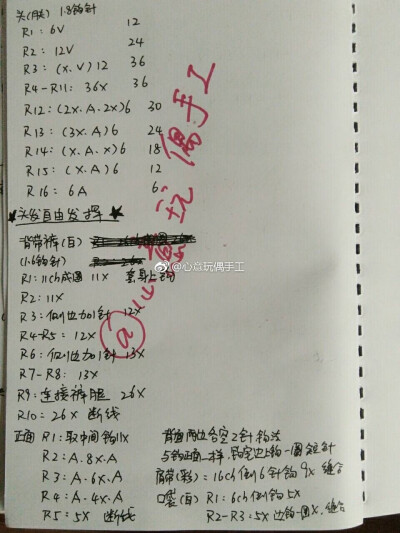 头(肤) 1.8钩针
R1: 6V 12
R2: 12V 24
R3: (X.V)12 36
R4-R11: 36X 36
R12: (2X.A.2X)6 30
R13: (3X.A)6 24
R14: (X.A.X)6 18
R15: (X.A)6 12
R16: 6A 6
★头发自由发挥★
背带裤(白)
(1.6钩针)
R1: 11ch成圈 11X
R2: 11X
R3: 侧边加1针 12X
R4-R5: 12X
R6: 侧边加1针 13X
R7-R8: 13X
R9: 连接裤腿 26X
R10: 26X 断线
正面 R1: 取中间钩11X
R2: A.8X.A
R3: A.6X.A
R4: A.4X.A
R5: 5X 断线
背面两边各空2针钩法
与钩正面一样,钩完边上钩一圈短针
肩带(彩): 16ch倒6针钩9X 缝合
口袋(白) R1: 6ch倒钩5X
R2-R3: 5X 边钩一圈X.缝合
@心意玩偶手工
@心意玩偶手工